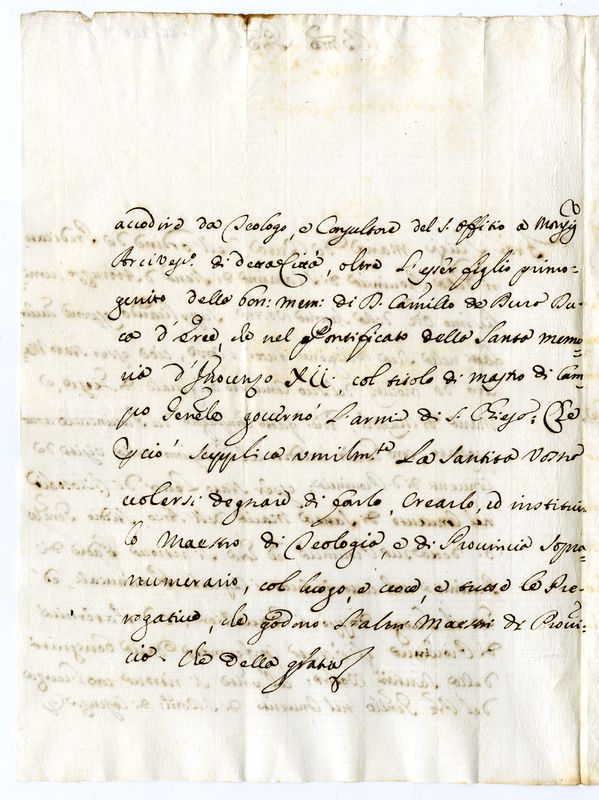 accudire da Teologo, e Consultore del S. Offitio a Monsig
Arcivesc.o di detta Città, oltre l'esser figlio primo-
genito della bon: mem: di D. Camillo de Du-
ca d', che nel Pontificato della Santa memo-
ria d'Inocenzo XII, col titolo di mastro di Cam-
po Genele governò l'armi di S. Chiesa; Che
perciò supplica umilm.te La Santità Vostra
volersi degnare di farlo, crearlo, ed instituir-
lo Maestro di Teologia, e di Provincia sopra-
numerario, col luogo, e voce, e tutte le Pre-
rogative, che godono l'altri Maestri di Provin-
cia. Che della gratia